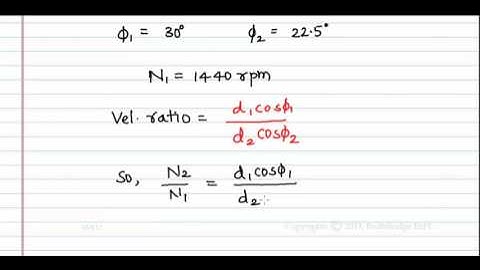 ϕ₁ = 30° ϕ₂ = 22.5°
N₁ = 1440 rpm
Vel. ratio = d₁cosϕ₁ / d₂cosϕ₂
So, N₂ / N₁ = d₁cosϕ₁ / d₂